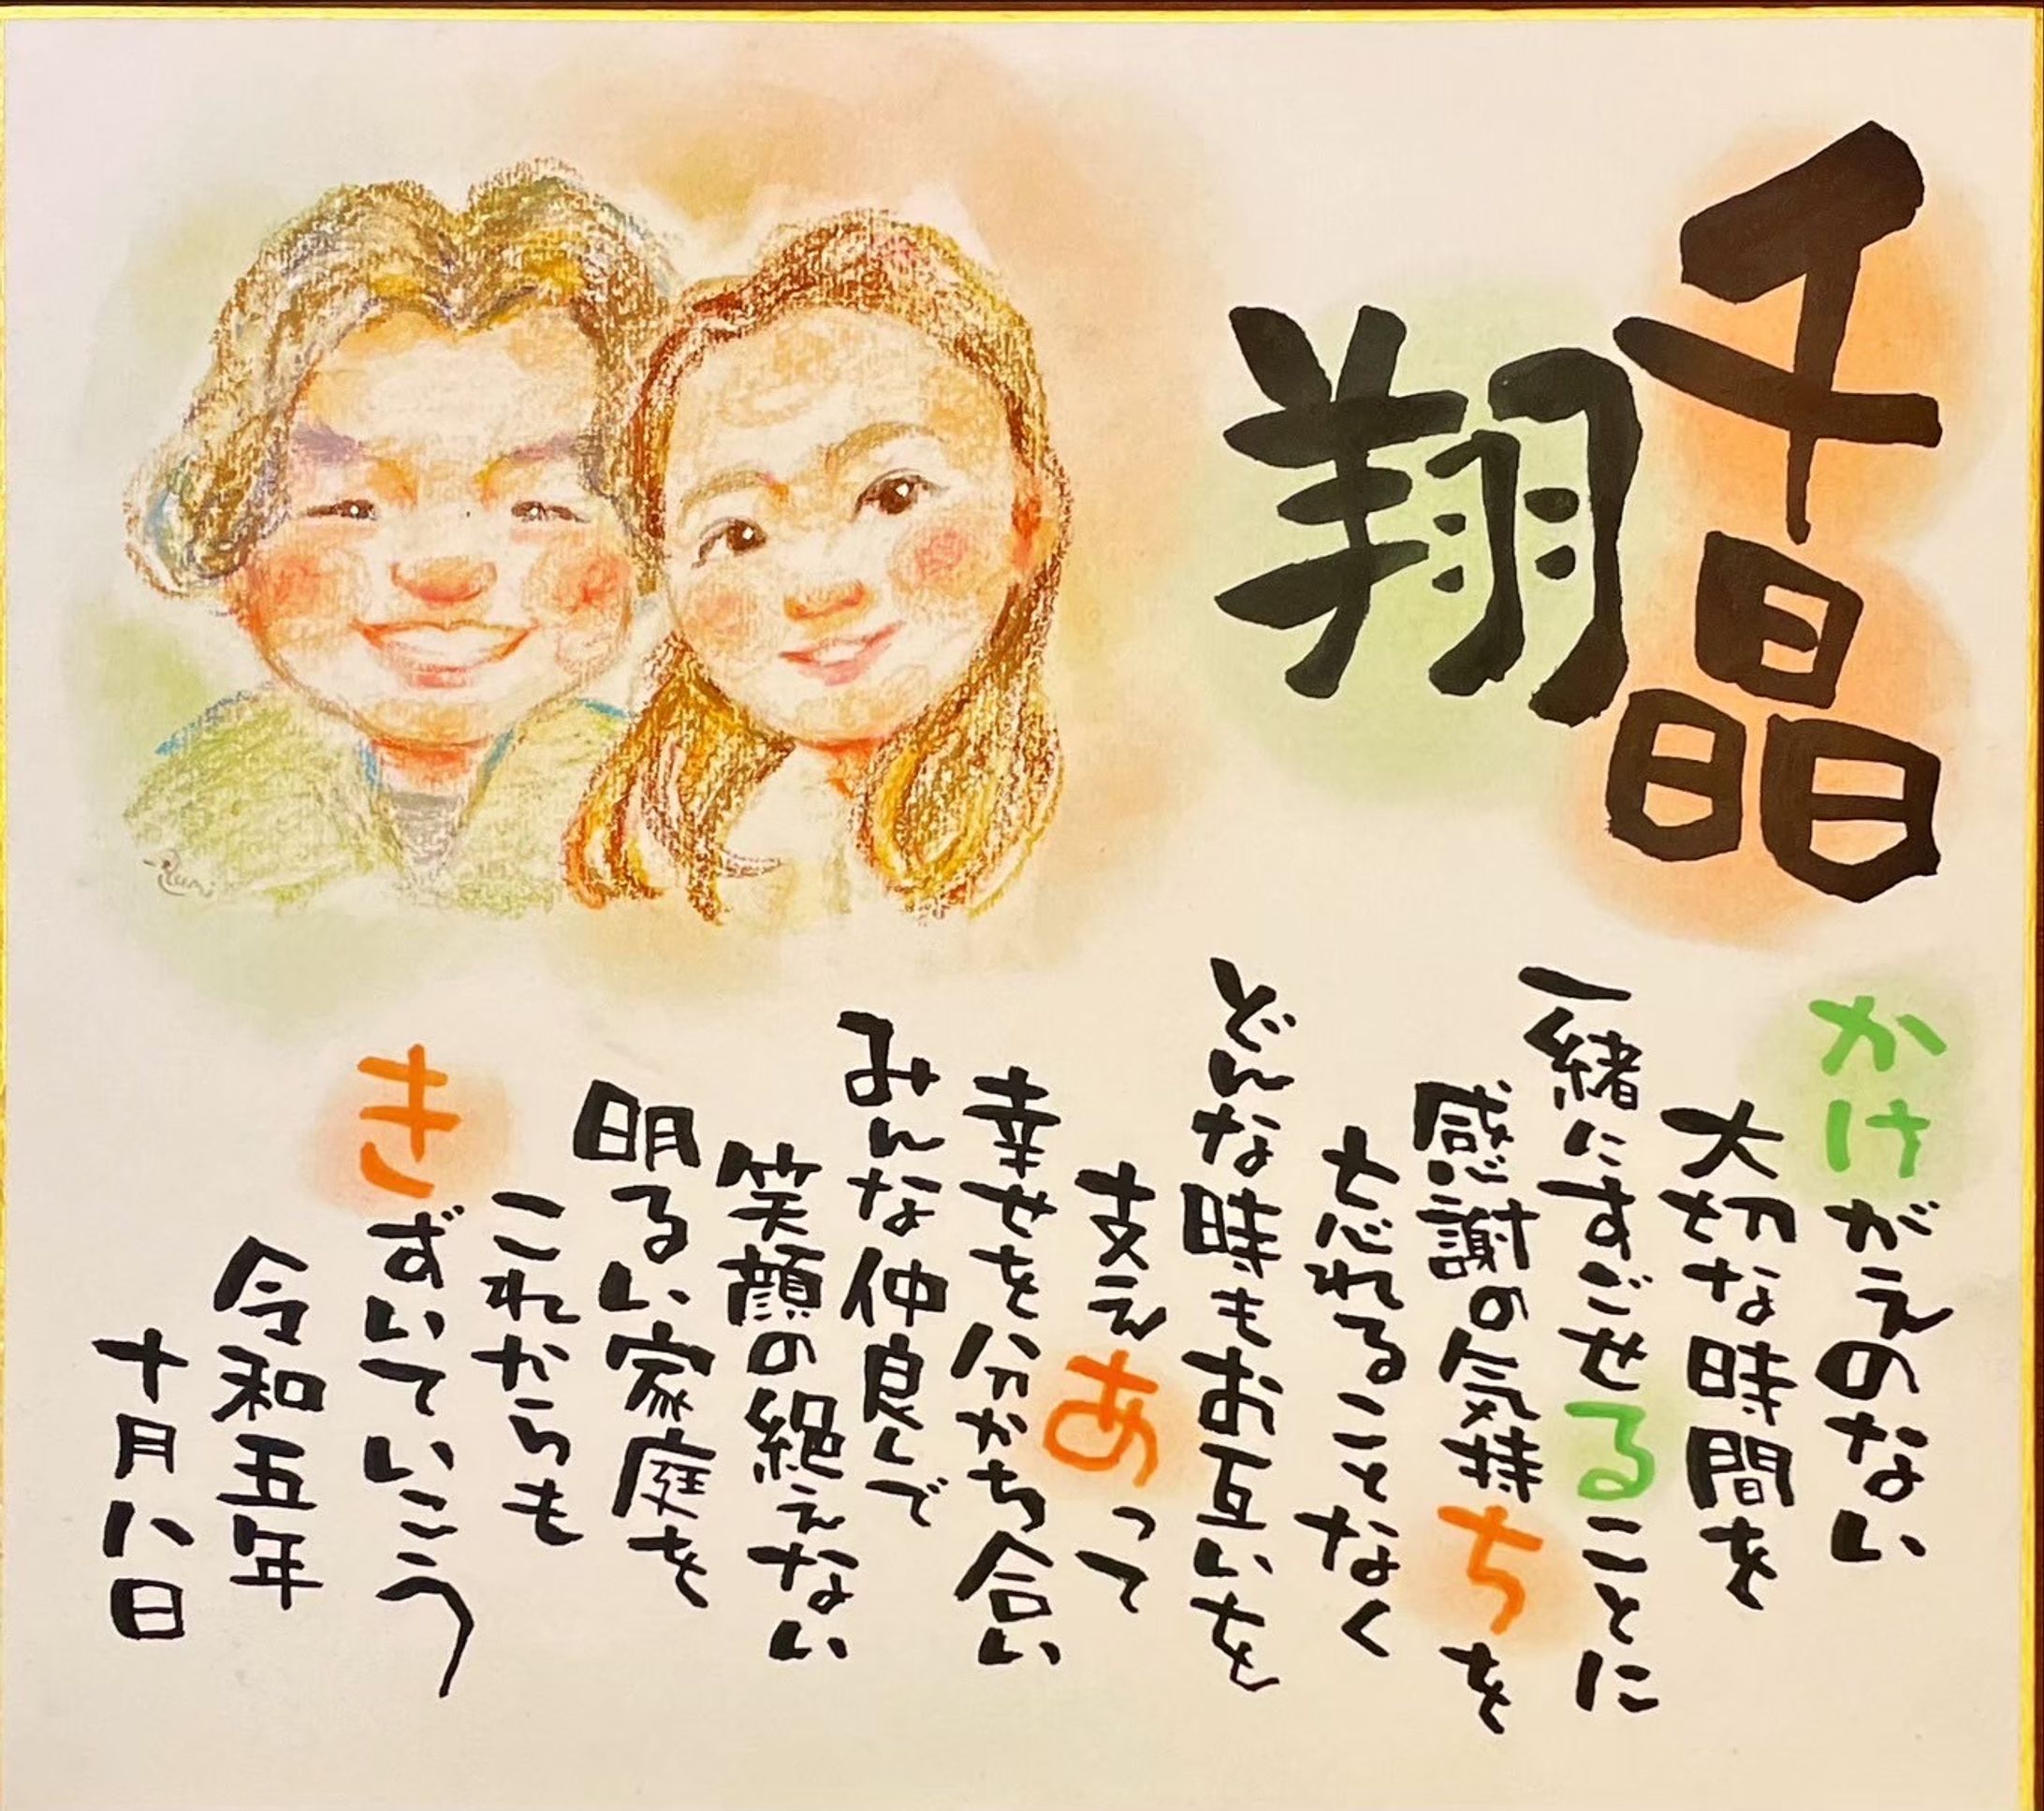 千晶
翔
かけがえのない
大切な時間を
一緒にすごせることに
感謝の気持ちを
忘れることなく
どんな時もお互いを
支えあって
幸せを分かち合い
みんな仲良しで
笑顔の絶えない
明るい家庭を
これからも
きずいていこう
令和五年
十月八日